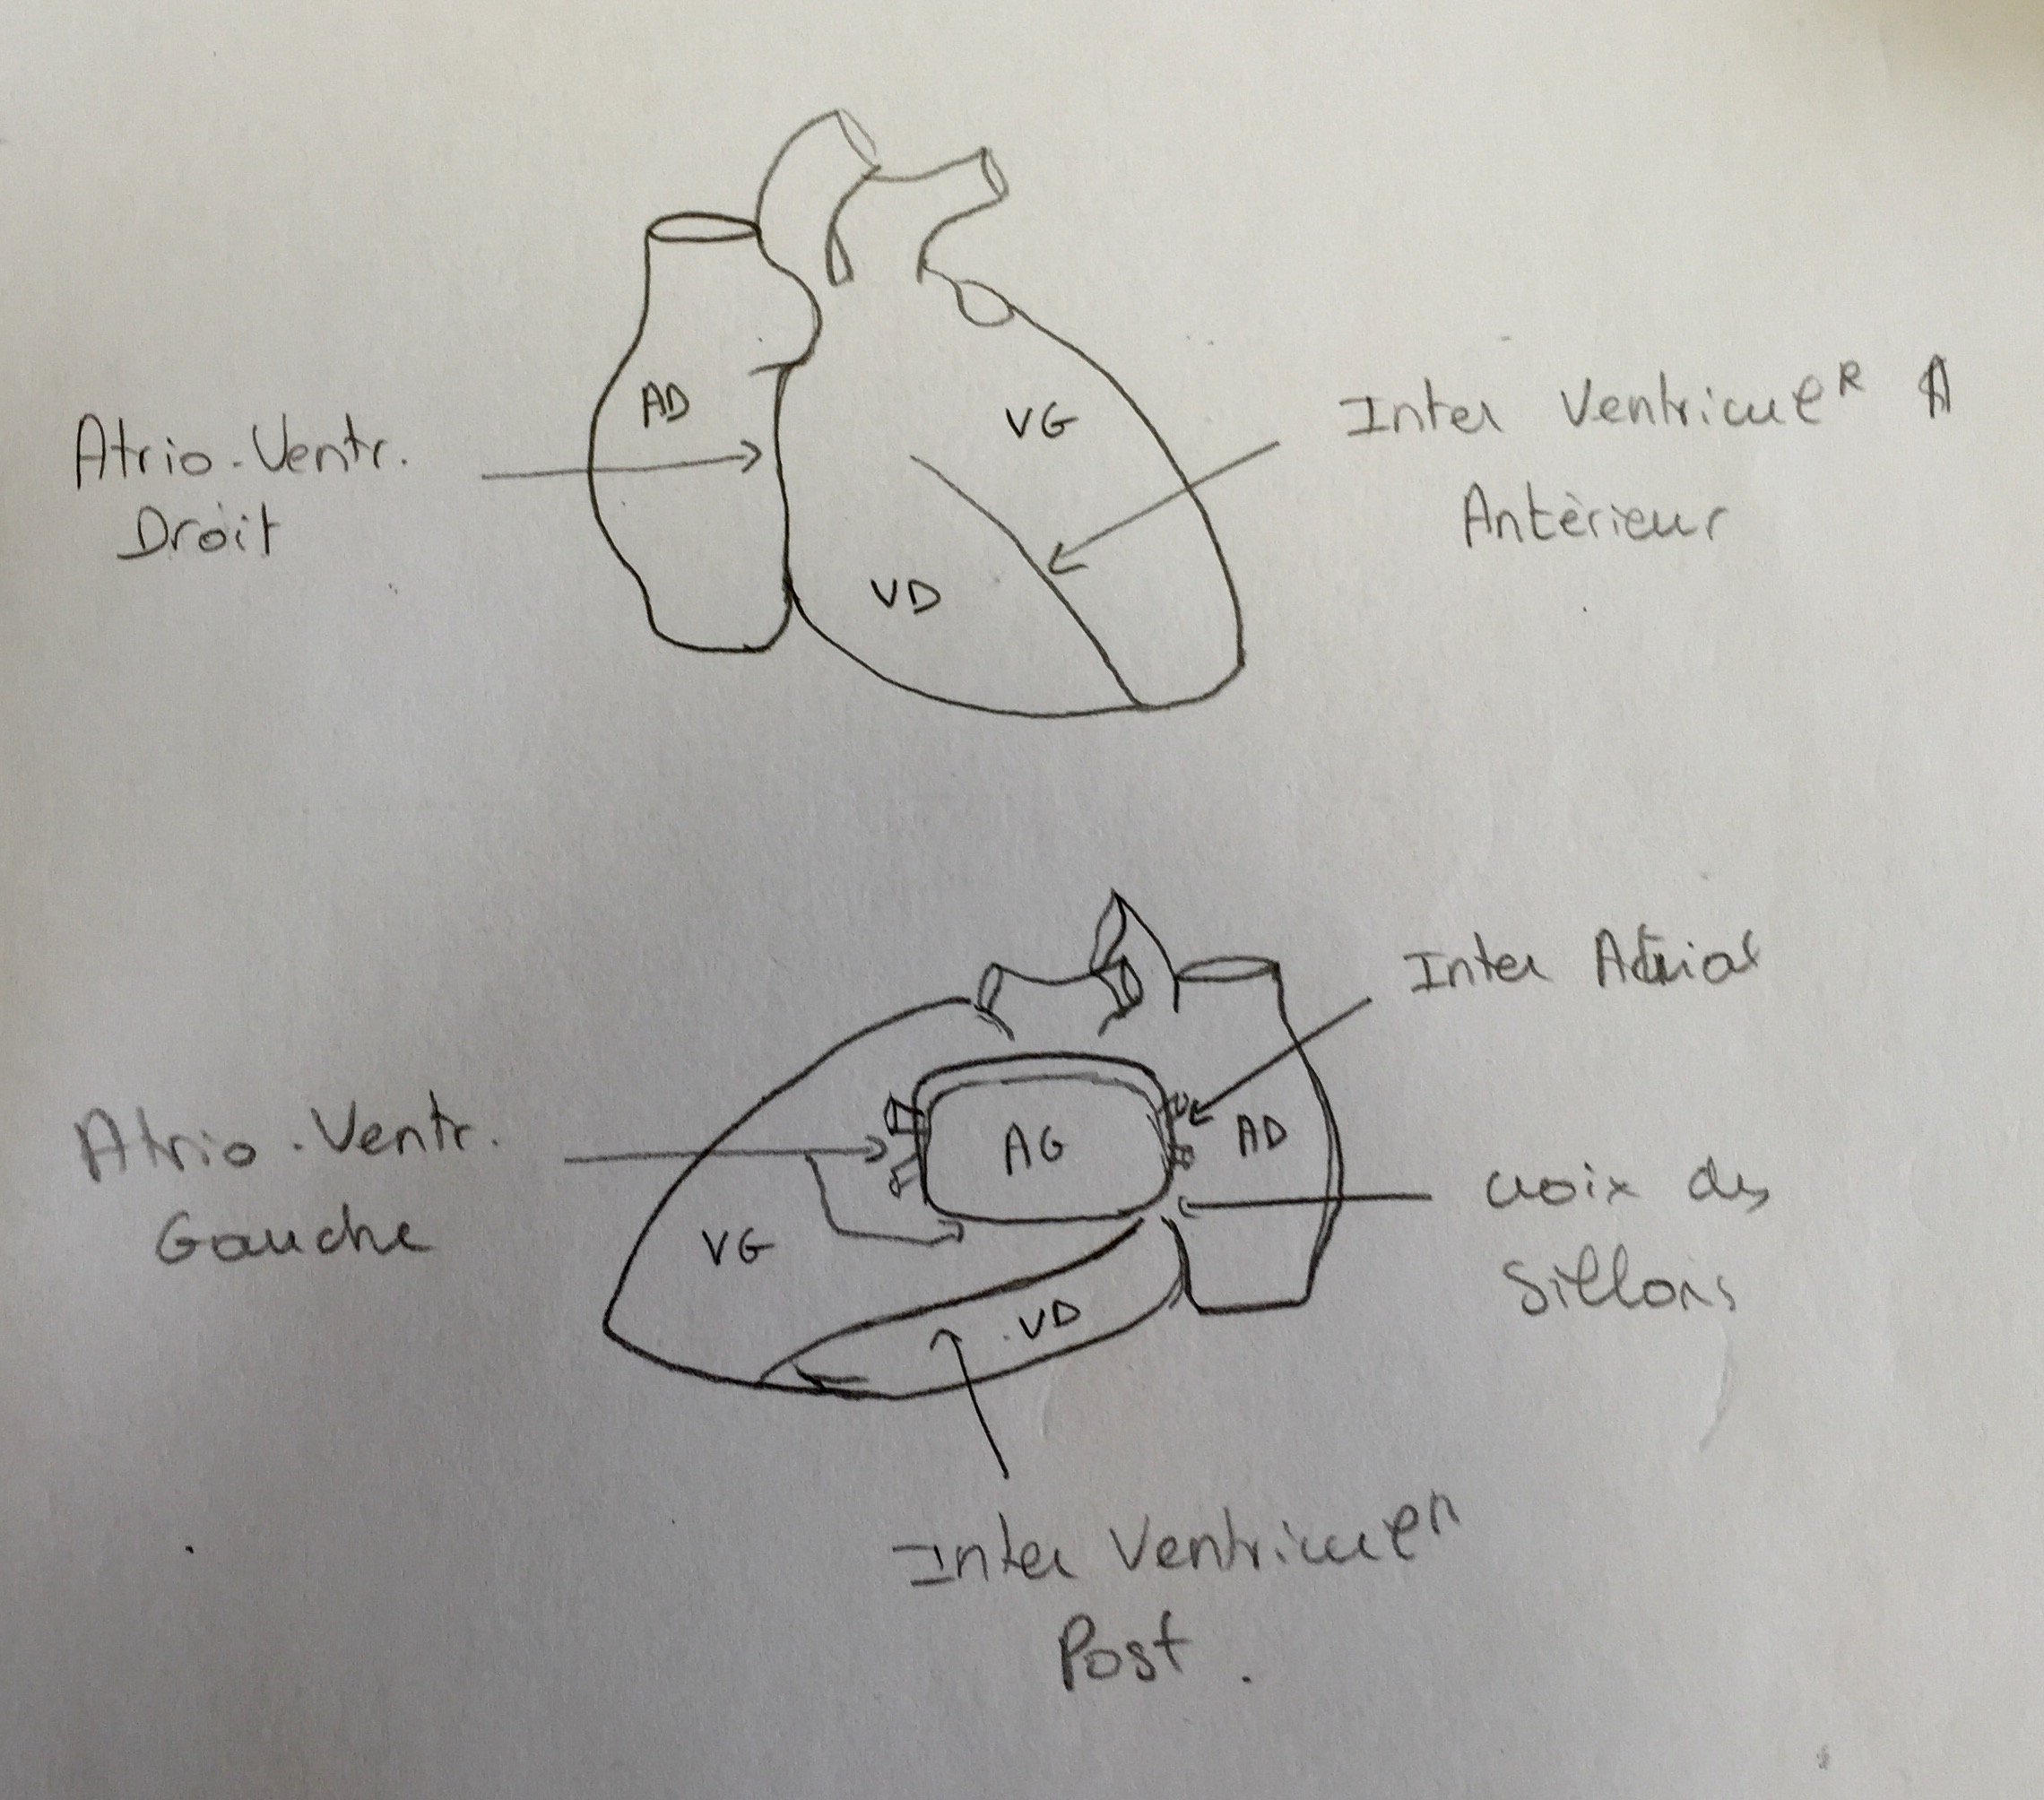 Atrio-Ventr.
Droit
AD
VG
VD
Inter Ventriculer A
Antérieur
Inter Atrial
Atrio-Ventr.
Gauche
AG
AD
croix des
Sillons
VG
VD
Inter Ventriculer
Post.